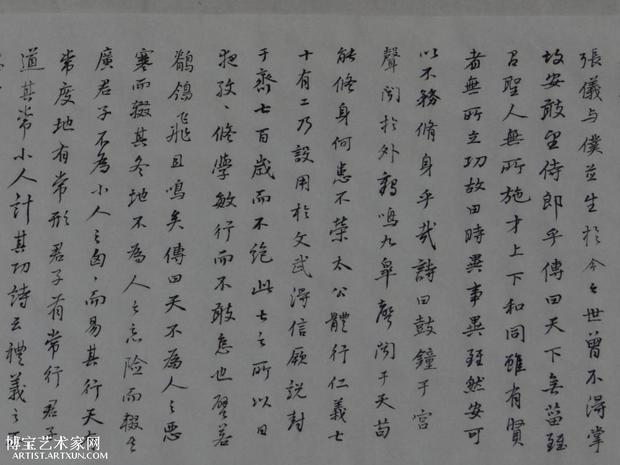 張儀与僕並生於今之世曾不得掌
故安敢望侍郎乎傳曰天下無菑雖
有聖人無所施才上下和同雖有賢
者無所立功故曰時異事異雖然安可
以不務脩身乎哉詩曰鼓鐘于宮
聲聞於外鶴鳴九皋聲聞于天苟
能脩身何患不榮太公體行仁義七
十有二乃設用於文武得信厥説封
于齊七百歳而不絶此士之所以日
夜孜〻脩學敏行而不敢怠也譬若
鶺鴒飛且鳴矣傳曰天不為人之惡
寒而輟其冬地不為人之惡险而輟其
廣君子不為小人之匈〻而易其行天有
常度地有常形君子有常行君子
道其常小人計其功詩云禮義之不
博宝艺术家网
ARTIST.ARTXUN.COM